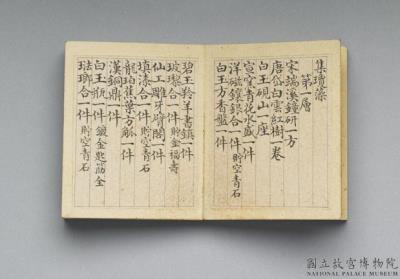 集瓊藻
第一層
宋端溪鐘研一方
唐岱白雲紅樹一卷
白玉硯山一座
宣窰青花水盛一件
洋磁鑲銀合一件 貯空青石
白玉方香盤一件
碧玉羚羊書鎮一件
玻瓈合一件 貯金福壽
仙工雕牙寶閣一件
填漆合一件 貯空青石
龍珀蕉葉方觚一件
漢銅鼎一件
白玉瓶一件 鍍金匙筯全
琺瑯合一件 貯空青石
國立故宮博物院
NATIONAL PALACE MUSEUM